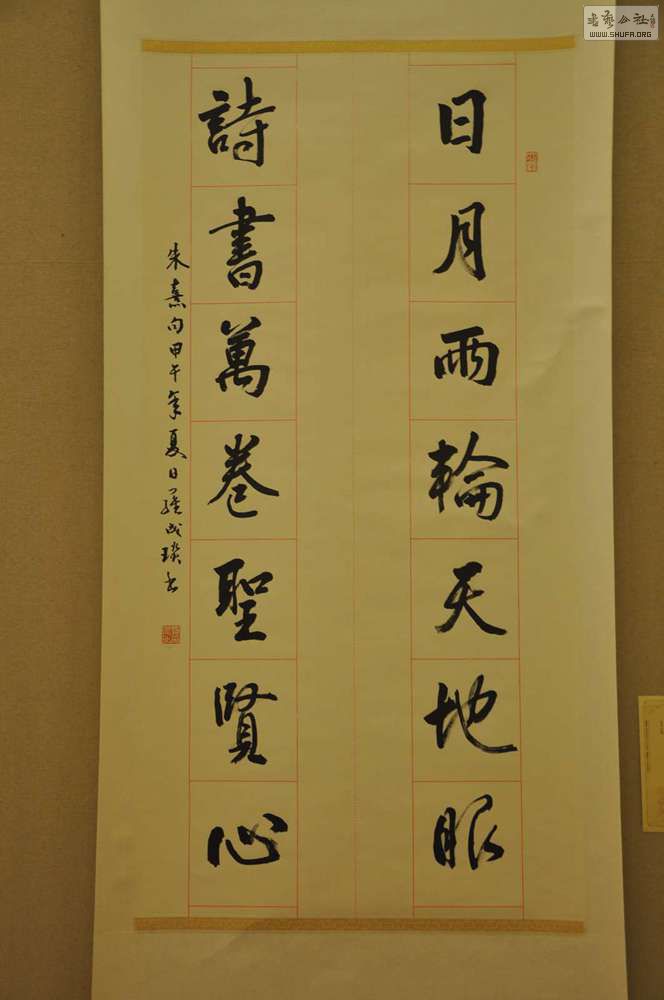 日月兩輪天地眼
詩書萬卷聖賢心
朱熹句甲午年夏日羅成琰书
书艺公社
WWW.SHUFA.ORG